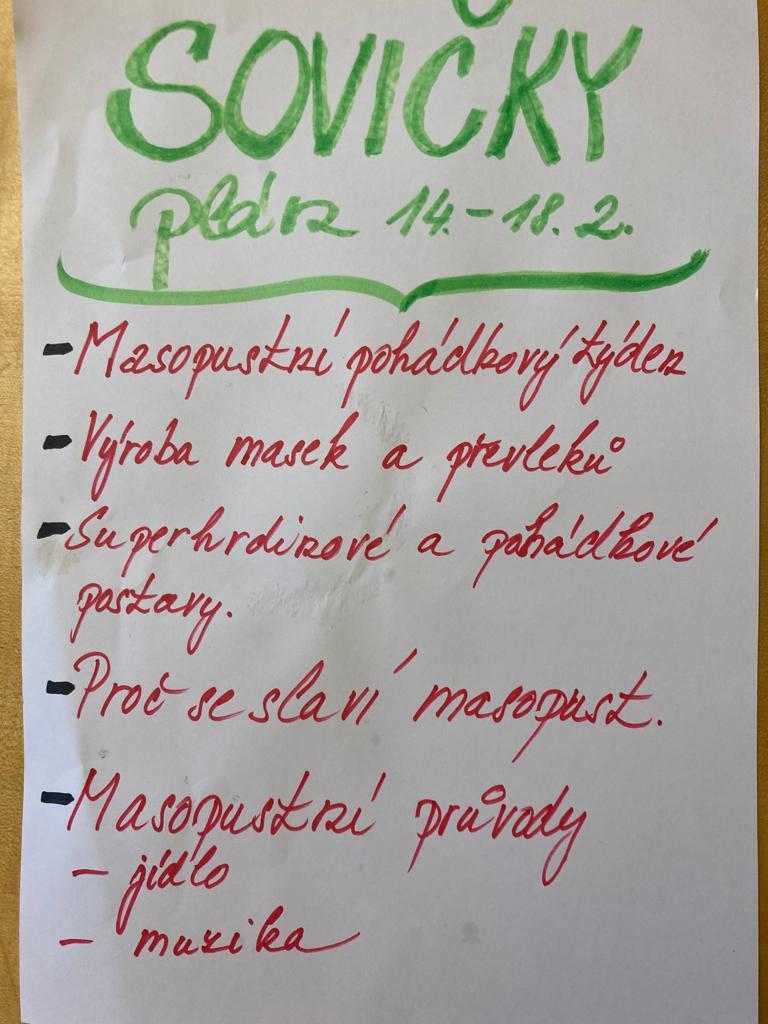 SOVIČKY
plán 14.-18.2.
- Masopustní pohádkový týden
- Výroba masek a převleků
- Superhrdinové a pohádkové
postavy.
- Proč se slaví masopust.
- Masopustní průvody
- jídlo
- muzika